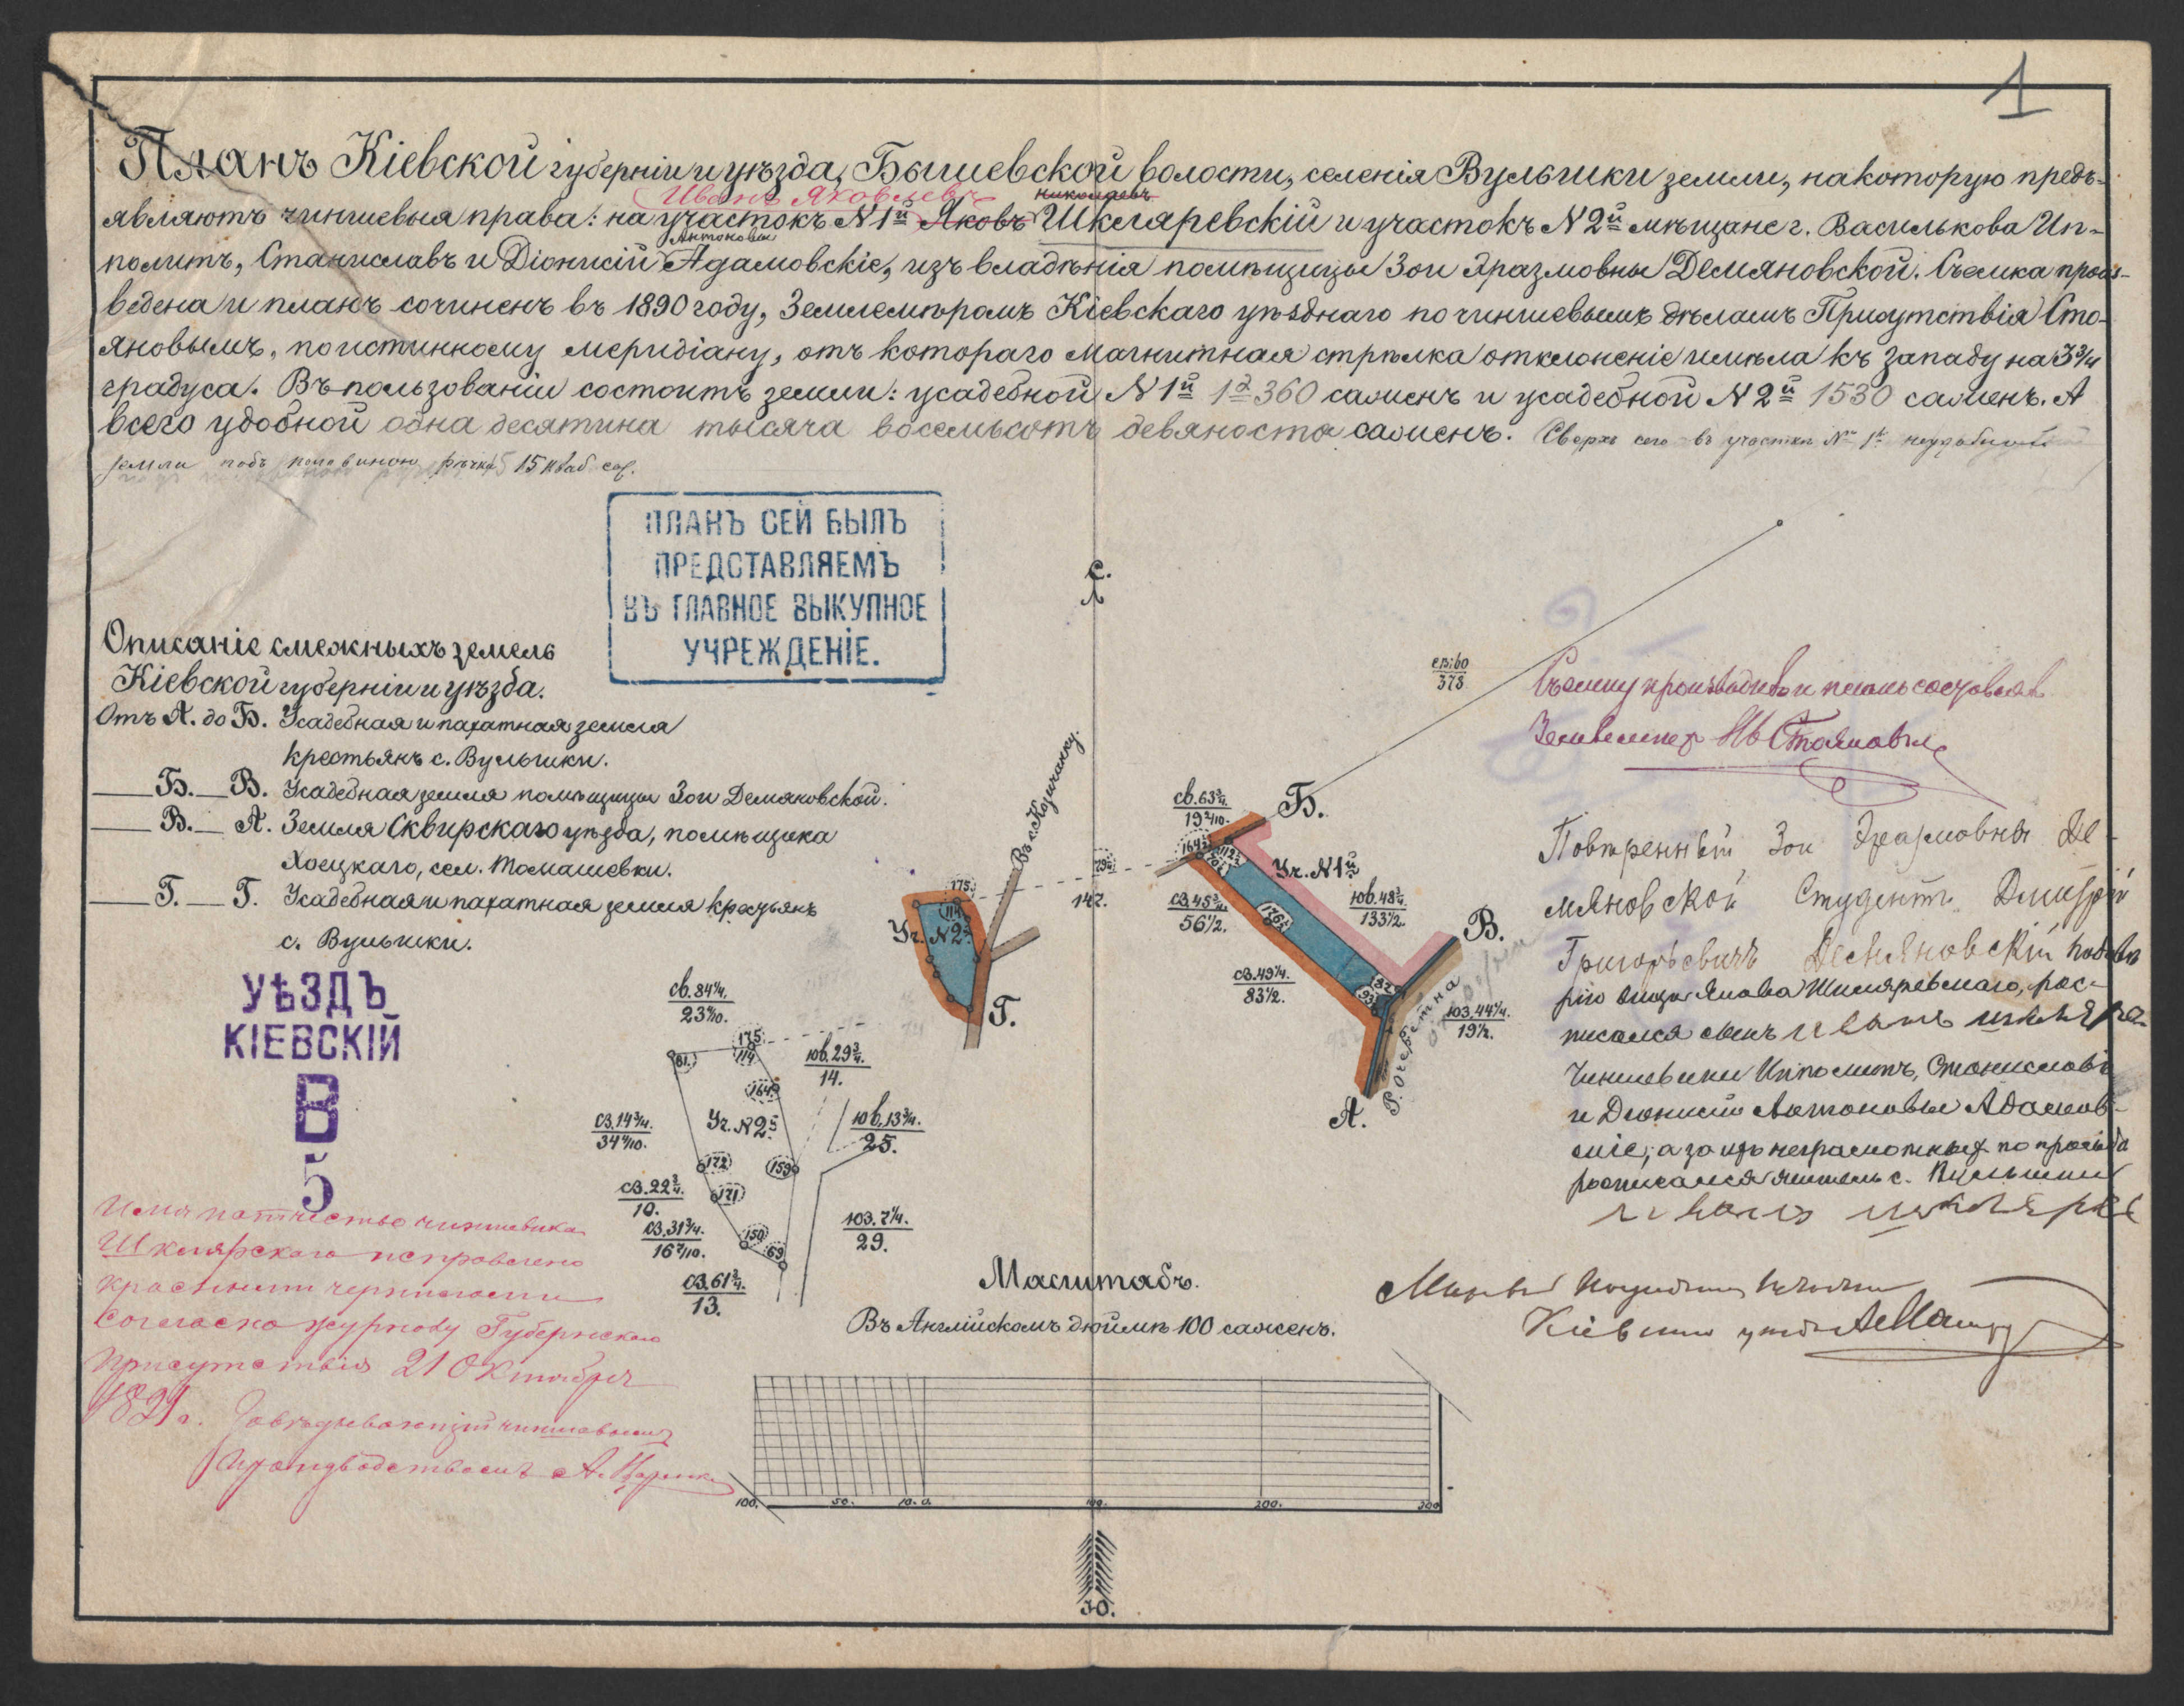 1
Планъ Кіевской губерніи и уѣзда, Бышевской волости, селенія Вульшки земли, на которую предъ-
Иванъ Яковлевъ Николаевъ
являютъ чиншевыя права: на участокъ N 1й Яковъ Шкляревскій и участокъ N 2й мѣщане г. Василькова Ип-
Антоновы
политъ, Станиславъ и Діонисій Адамовскіе, изъ владѣнія помѣщицы Зои Эразмовны Демяновской. Съемка произ-
ведена и планъ сочиненъ въ 1890 году, Землемѣромъ Кіевскаго уѣзднаго по чиншевымъ дѣламъ Присутствія Сто-
яновымъ, по истинному меридіану, отъ котораго магнитная стрѣлка отклоненіе имѣла къ западу на 3 3/4
градуса. Въ пользованіи состоитъ земли: усадебной N 1й 1д 360 саженъ и усадебной N 2й 1530 саженъ. А
всего удобной одна десятина тысяча восемьсотъ девяносто саженъ. Сверхъ сего въ участкѣ № 1й неудобной
земли подъ половиною рѣчки 15 квад. саж.
ПЛАНЪ СЕЙ БЫЛЪ
ПРЕДСТАВЛЯЕМЪ
ВЪ ГЛАВНОЕ ВЫКУПНОЕ
УЧРЕЖДЕНІЕ.
С.
Описаніе смежныхъ земель
Кіевской губерніи и уѣзда.
Отъ А. до Б. Усадебная и пахатная земля
крестьянъ с. Вульшки.
Б. В. Усадебная земля помѣщицы Зои Демяновской.
В. А. Земля Сквирскаго уѣзда, помѣщика
Хоецкаго, сел. Томашевки.
Г. Г. Усадебная и пахатная земля крестьянъ
с. Вульшки.
УѢЗДЪ
КІЕВСКІЙ
В
5
Имя и отчество чиншевика
Шклярскаго исправлено
красными чернилами
согласно журналу Губернскаго
Присутствія 21 Октября
1891 г. Завѣдывающій чиншевымъ
производствомъ А.
Въ с. Козичанку.
175
114
Уч. N 2й
Г.
79
147.
378
св. 63 3/4.
19 2/10.
Б.
164
112
Уч. N 1й
СЗ. 45 3/4.
56 1/2.
176
юв. 48 3/4.
133 1/2.
В.
СЗ. 49 1/4.
83 1/2.
ЮЗ. 44 1/4.
19 1/2.
Р. Очеретна
А.
св. 84 1/4.
23 4/10.
175
81.
114
юв. 29 3/4.
14.
164
СЗ. 14 3/4.
34 4/10.
Уч. N 2й
юв. 13 3/4.
25.
172
159
СЗ. 22 3/4.
10.
171
СЗ. 31 3/4.
16 7/10.
150
69
ЮЗ. 7 1/4.
29.
СЗ. 61 3/4.
13.
Съемку производилъ и планъ составлялъ
Землемѣръ Стояновъ
Повѣренный Зои Эразмовны Де-
мяновской Студентъ Дмитрій
Григорьевичъ Демяновскій
отца Якова Шкляревскаго, рос-
писался сынъ Иванъ
Чиншевики Ипполитъ, Станиславъ
и Діонисій Антоновы Адамов-
скіе, а за ихъ неграмотныхъ по просьбѣ
росписался житель с. Вульшки
Иванъ
Масштабъ.
Въ Англійскомъ дюймѣ 100 саженъ.
100. 50. 10. 0. 100. 200. 300
Ю.